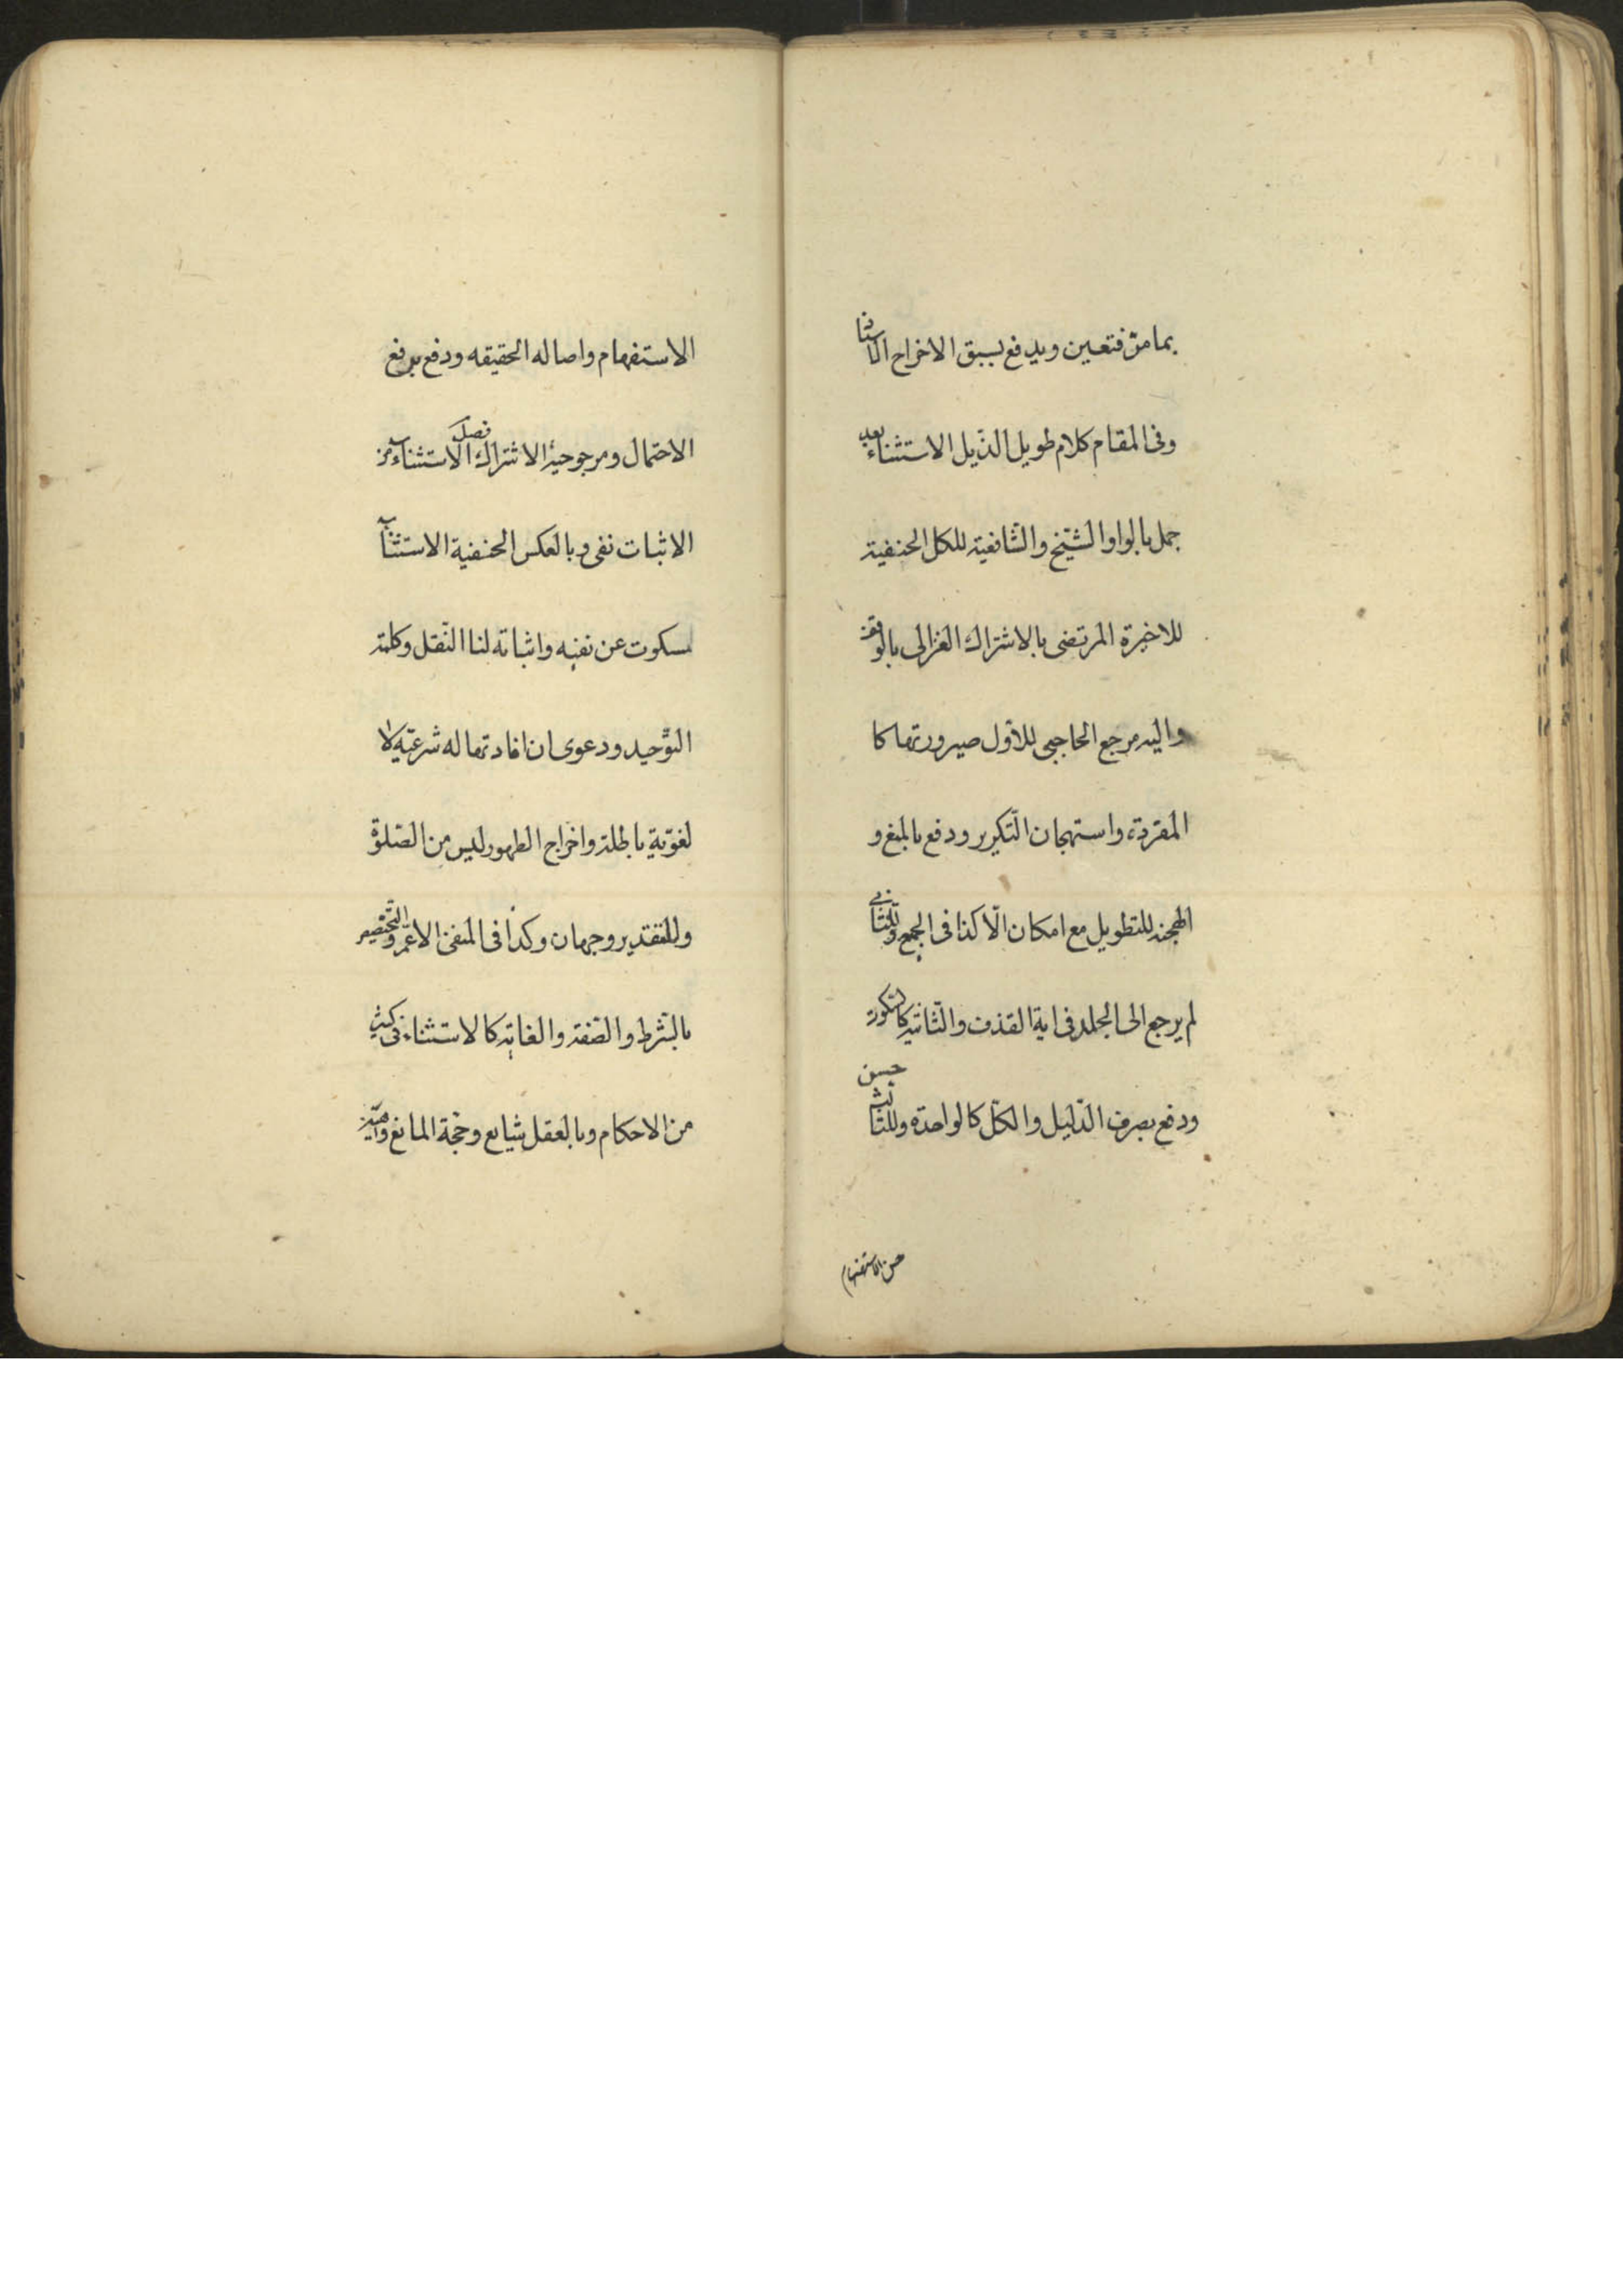 بما مرّ فتعين ويدفع بسبق الاخراج الاسناد
وفى المقام كلام طويل الذّيل الاستثناء بعد
جمل بالواو الشّيخ والشّافعيّة للكل الحنفيّة
للاخيرة المرتضى بالاشتراك الغزالى بالوقف
واليه مرجع الحاجبى للأوّل صيرورتها كا
المفردة واستهجان التّكرير ودفع بالمنع و
الهجنه للتطويل مع امكان الّا كذا فى الجميع وللثّانى
لم يرجع الى الجلد فى اية القذف والثّانيه كالسّكوت
ودفع بصرف الدّليل والكلّ كالواحدة وللثّالث حسن
حسن الاستفهام
الاستفهام واصاله الحقيقه ودفع برفع
الاحتمال ومرجوحيّة الاشتراك فصل الاستثناء من
الاثبات نفى وبالعكس الحنفية الاستثناء
مسكوت عن نفيه واثباته لنا النّقل وكلمة
التوّحيد ودعوى ان افادتها له شرعيّه لا
لغويّة باطلة واخراج الطهور ليس من الصّلوة
وللتقدير وجهان وكذا فى المنفى الاعمّ والتّخصيص
بالشّرط والصّفة والغاية كالاستثناء فى كثير
من الاحكام وبالعقل شايع وحجّة المانع واهية